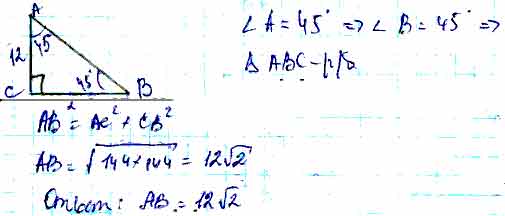 A
45
12
45°
C
B
∠A = 45° => ∠B = 45° =>
Δ ABC - р/б
AB² = AC² + CB²
AB = √144+144 = 12√2
Ответ: AB = 12√2